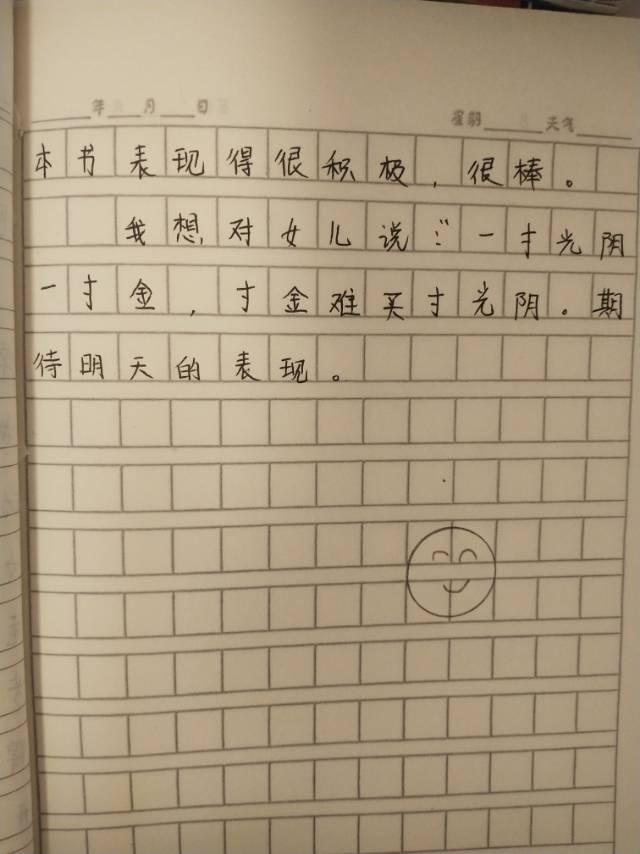 年 月 日 星期 天气
本书表现得很积极，很棒。
我想对女儿说：“一寸光阴
一寸金，寸金难买寸光阴。期
待明天的表现。